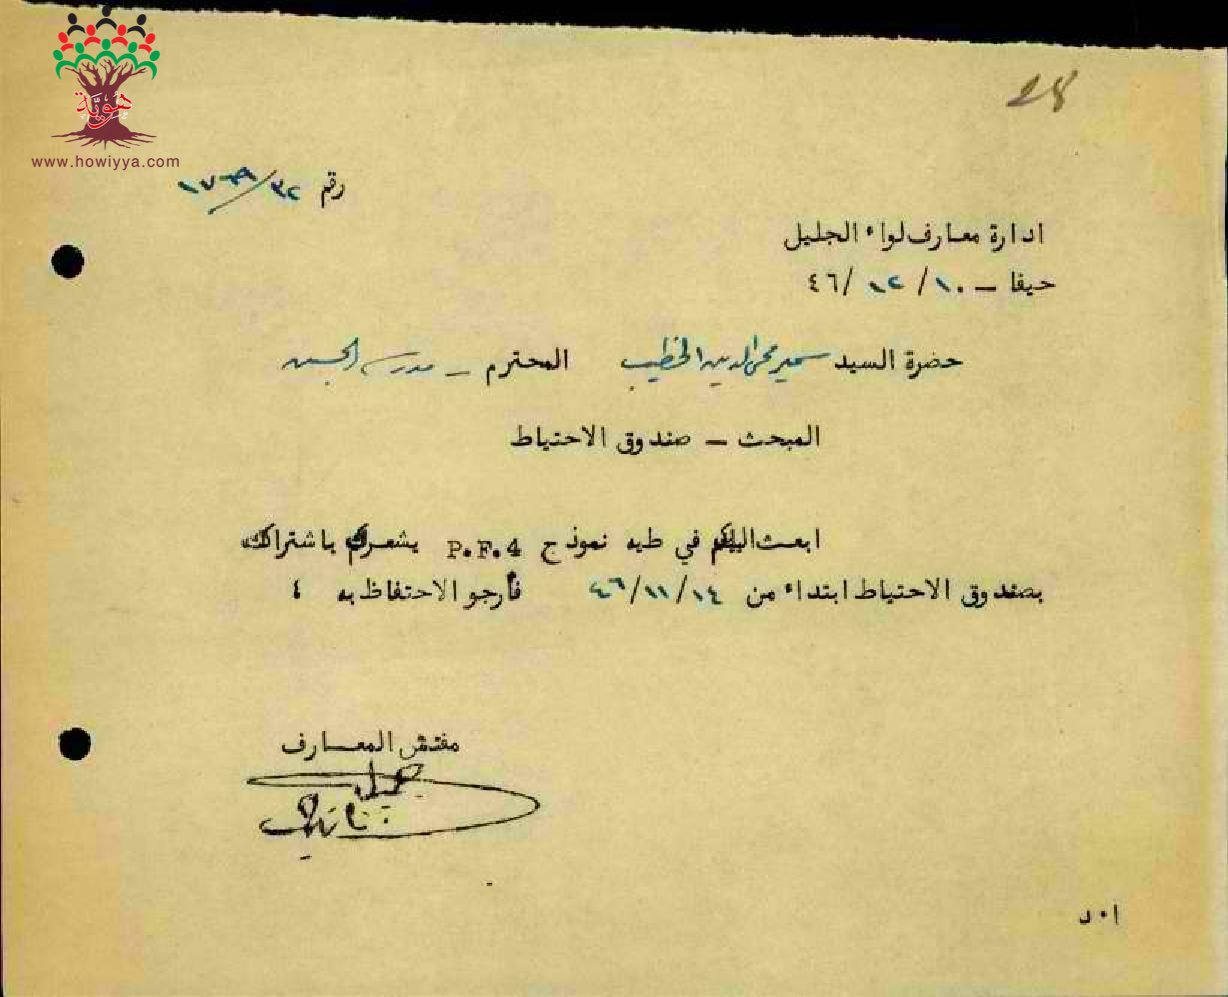 هوية
www.howiyya.com
28
رقم ٣٢/١٧٦٩
ادارة معارف لواء الجليل
حيفا – ١٠/١٢/٤٦
حضرة السيد سمير محي الدين الخطيب المحترم – مدرسة
المبحث – صندوق الاحتياط
ابعث اليكم في طيه نموذج P.F.4 يشعركم باشتراككم
بصندوق الاحتياط ابتداء من ١٤/١١/٤٦ فأرجو الاحتفاظ به ،
مفتش المعارف
ا٠د